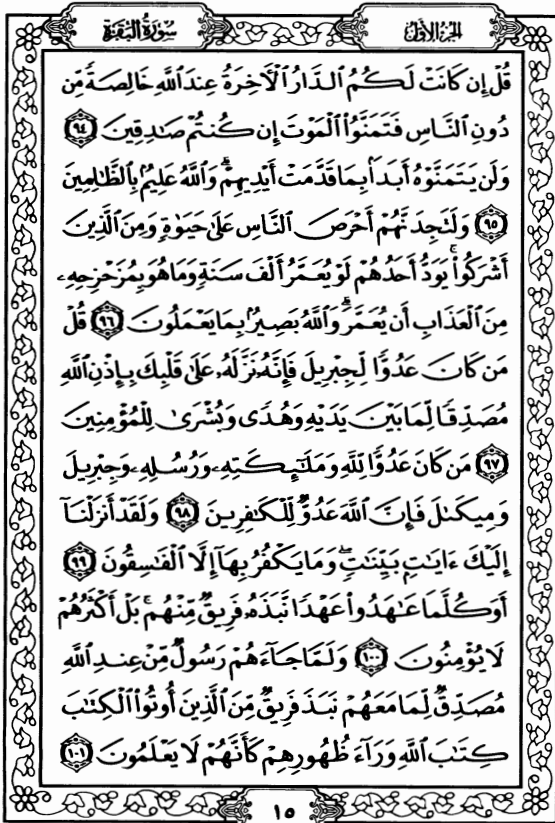 الجزء الأول
سورة البقرة
قُلْ إِن كَانَتْ لَكُمُ الدَّارُ الْآخِرَةُ عِندَ اللَّهِ خَالِصَةً مِّن
دُونِ النَّاسِ فَتَمَنَّوُا الْمَوْتَ إِن كُنتُمْ صَادِقِينَ ۝٩٤
وَلَن يَتَمَنَّوْهُ أَبَدًا بِمَا قَدَّمَتْ أَيْدِيهِمْ ۗ وَاللَّهُ عَلِيمٌ بِالظَّالِمِينَ
۝٩٥ وَلَتَجِدَنَّهُمْ أَحْرَصَ النَّاسِ عَلَىٰ حَيَوٰةٍ وَمِنَ الَّذِينَ
أَشْرَكُوا ۚ يَوَدُّ أَحَدُهُمْ لَوْ يُعَمَّرُ أَلْفَ سَنَةٍ وَمَا هُوَ بِمُزَحْزِحِهِ
مِنَ الْعَذَابِ أَن يُعَمَّرَ ۗ وَاللَّهُ بَصِيرٌ بِمَا يَعْمَلُونَ ۝٩٦ قُلْ
مَن كَانَ عَدُوًّا لِّجِبْرِيلَ فَإِنَّهُ نَزَّلَهُ عَلَىٰ قَلْبِكَ بِإِذْنِ اللَّهِ
مُصَدِّقًا لِّمَا بَيْنَ يَدَيْهِ وَهُدًى وَبُشْرَىٰ لِلْمُؤْمِنِينَ
۝٩٧ مَن كَانَ عَدُوًّا لِّلَّهِ وَمَلَٰٓئِكَتِهِ وَرُسُلِهِ وَجِبْرِيلَ
وَمِيكَىٰلَ فَإِنَّ اللَّهَ عَدُوٌّ لِّلْكَٰفِرِينَ ۝٩٨ وَلَقَدْ أَنزَلْنَآ
إِلَيْكَ ءَايَٰتٍ بَيِّنَٰتٍ ۖ وَمَا يَكْفُرُ بِهَآ إِلَّا الْفَٰسِقُونَ ۝٩٩
أَوَكُلَّمَا عَٰهَدُوا عَهْدًا نَّبَذَهُ فَرِيقٌ مِّنْهُم ۚ بَلْ أَكْثَرُهُمْ
لَا يُؤْمِنُونَ ۝١٠٠ وَلَمَّا جَآءَهُمْ رَسُولٌ مِّنْ عِندِ اللَّهِ
مُصَدِّقٌ لِّمَا مَعَهُمْ نَبَذَ فَرِيقٌ مِّنَ الَّذِينَ أُوتُوا الْكِتَٰبَ
كِتَٰبَ اللَّهِ وَرَآءَ ظُهُورِهِمْ كَأَنَّهُمْ لَا يَعْلَمُونَ ۝١٠١
١٥